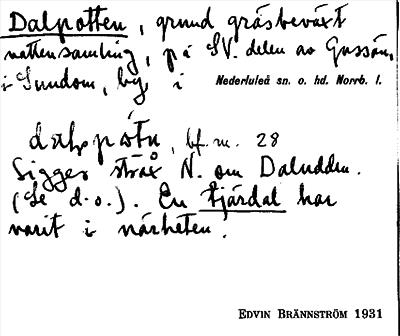 Dalpotten, grund gräsbeväxt
vattensamling, på SV. delen av Gussön,
i Sundom, by, i Nederluleå sn. o. hd. Norrb. l.
bf. m. 28
Ligger strax N. om Daludden.
(Se d. o.). En tjärdal har
varit i närheten.
EDVIN BRÄNNSTRÖM 1931